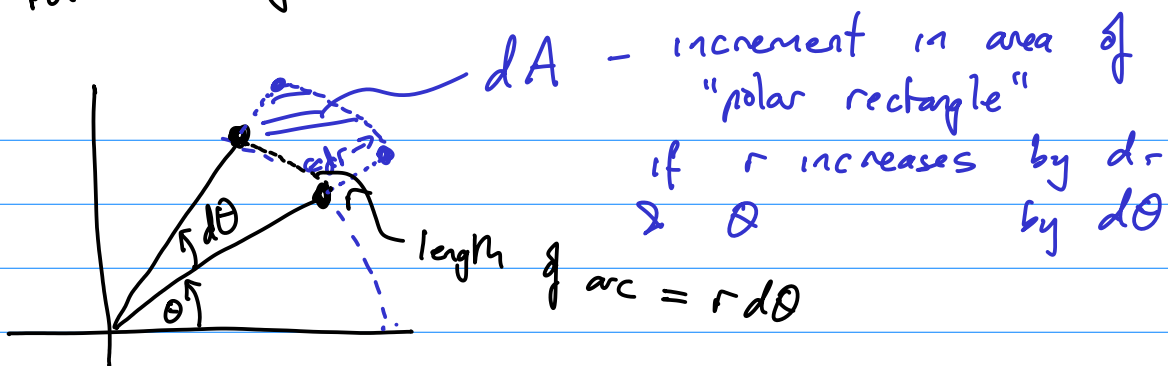 dA - increment in area of
"polar rectangle"
if r increases by dr
& θ by dθ
dr
r
dθ
θ
length of arc = r dθ